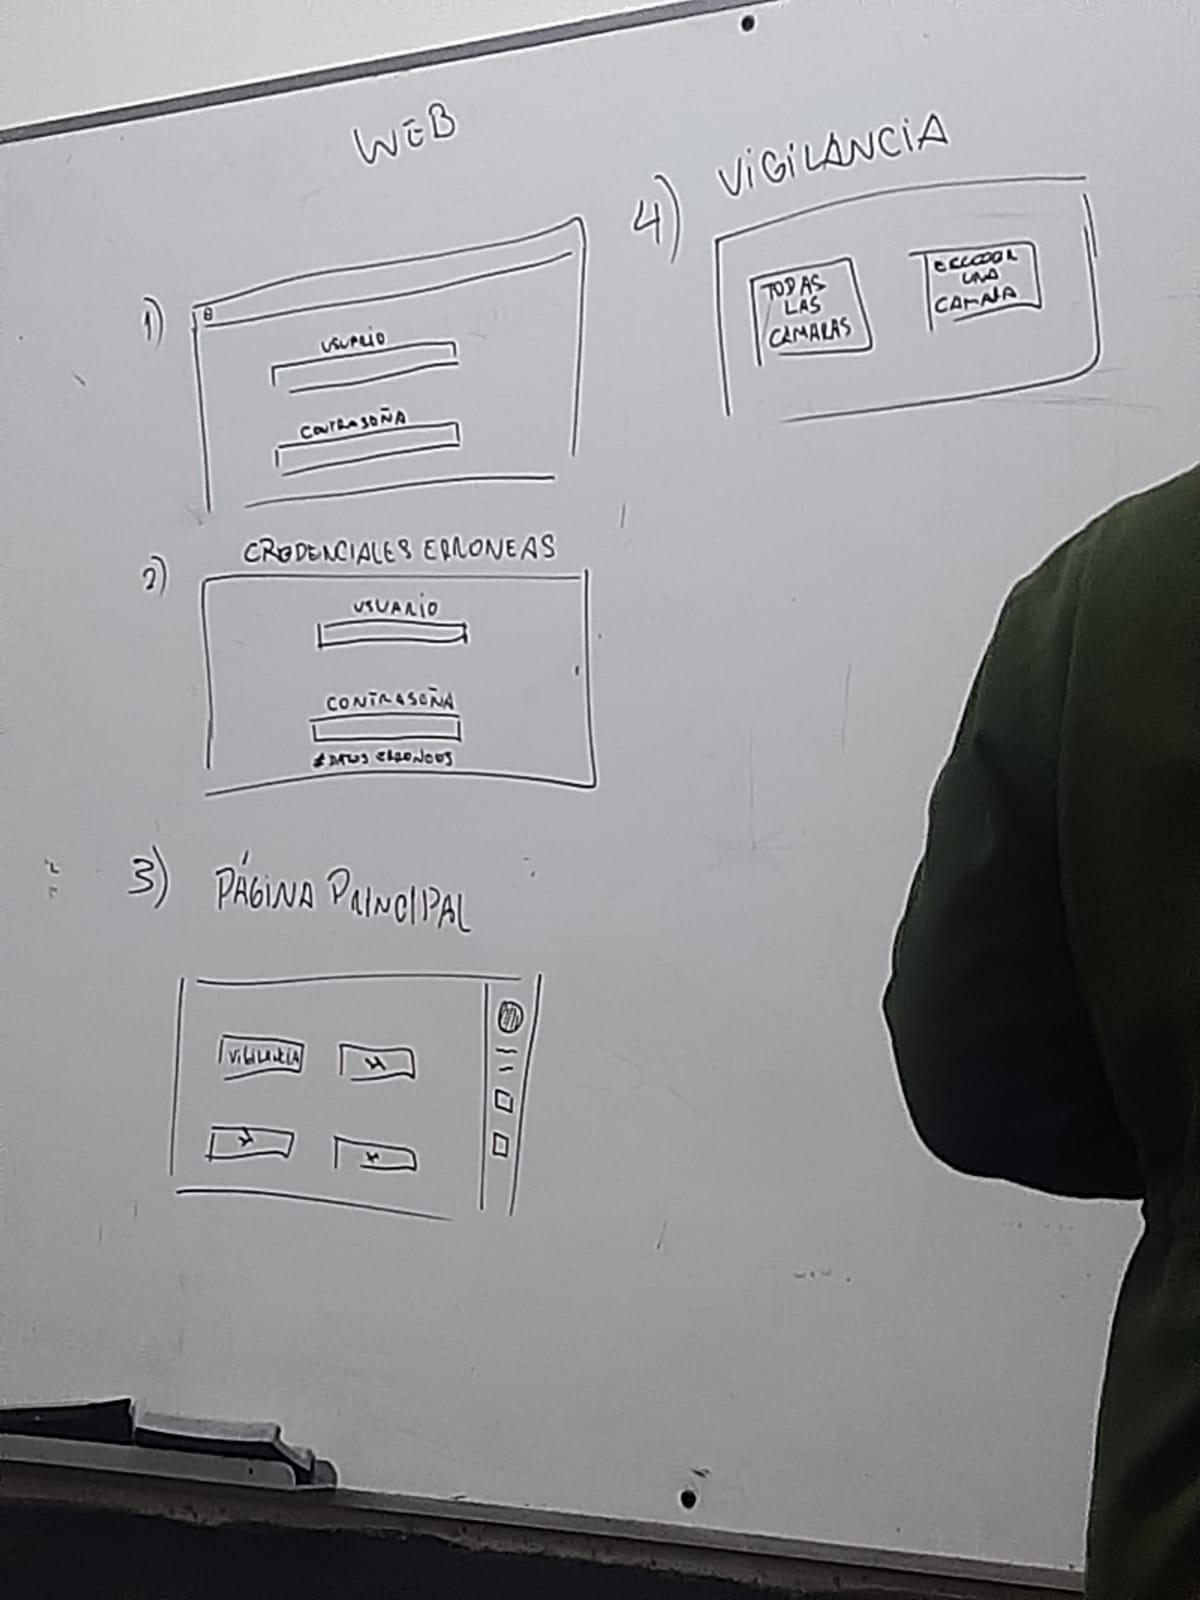 WEB
1)
USUARIO
CONTRASEÑA
2)
CREDENCIALES ERRONEAS
USUARIO
CONTRASEÑA
* DATOS ERRONEOS
3) PÁGINA PRINCIPAL
VIGILANCIA
4) VIGILANCIA
TODAS
LAS
CÁMARAS
UNA
CAMARA